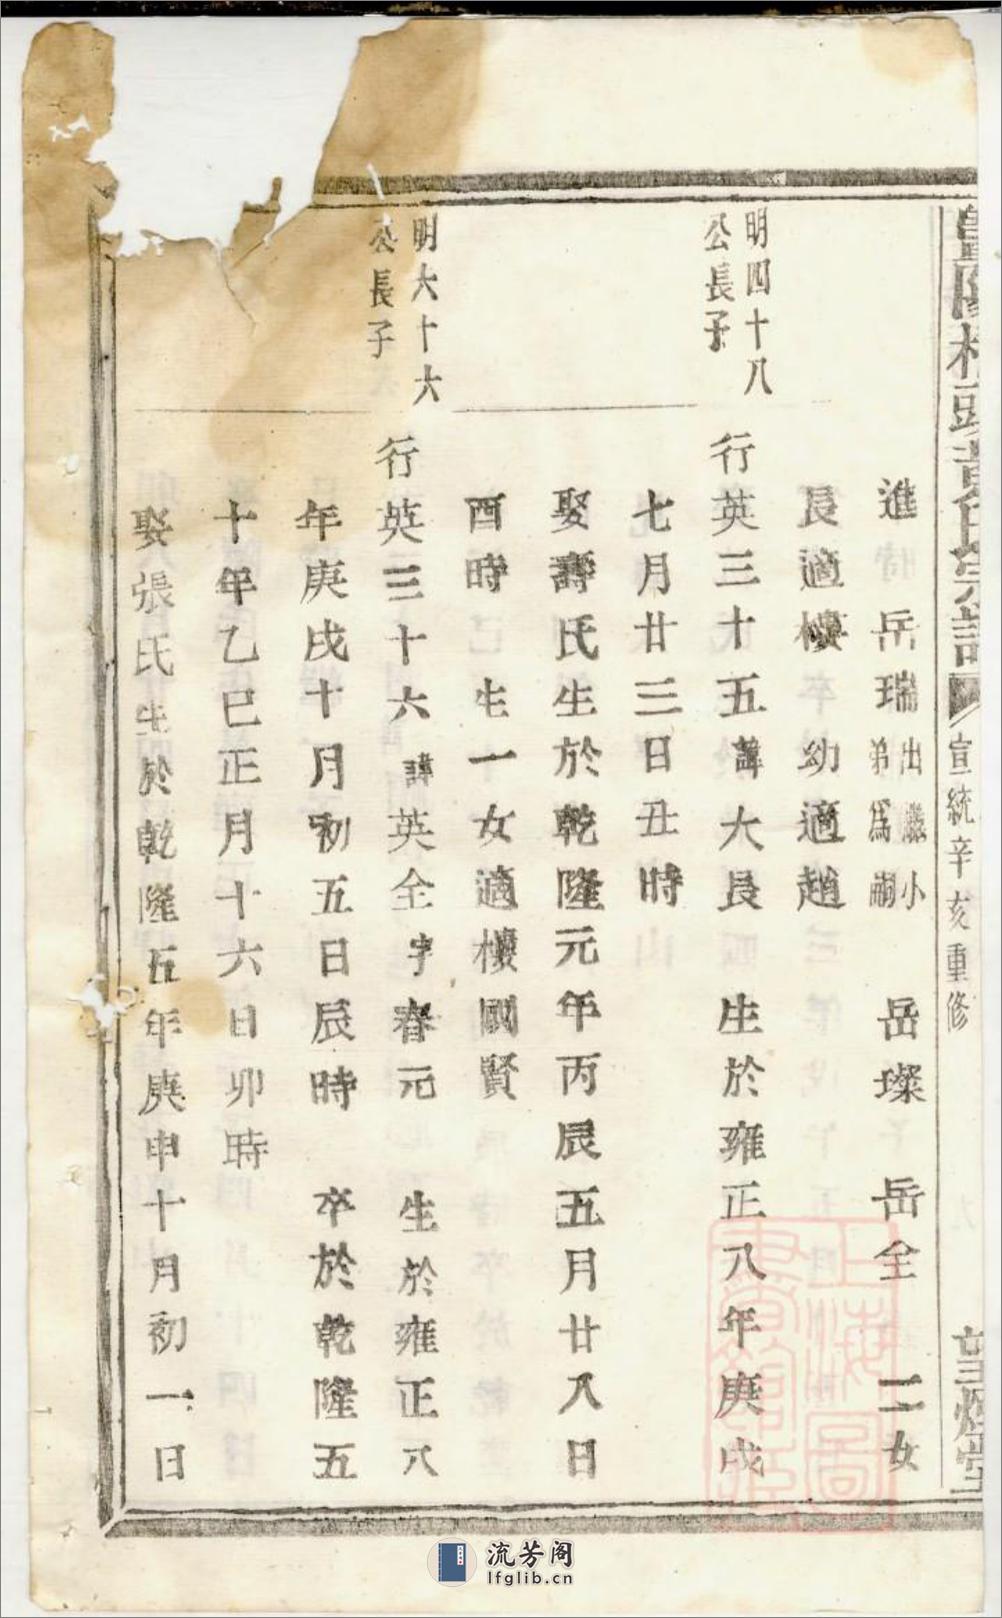 黃氏宗譜
宣統辛亥重修
進 岳瑞出繼小弟爲嗣 岳璨 岳全 二女
長適樓 幼適趙
明四十八
公長子
行英三十五諱大良 生於雍正八年庚戌
七月廿三日丑時
娶壽氏生於乾隆元年丙辰五月廿八日
酉時 生一女適樓國賢
明六十六
公長子
行英三十六諱英全字春元 生於雍正八
年庚戌十月初五日辰時 卒於乾隆五
十年乙巳正月十六日卯時
娶張氏生於乾隆五年庚申十月初一日
上海圖書館藏
流芳阁
lfglib.cn